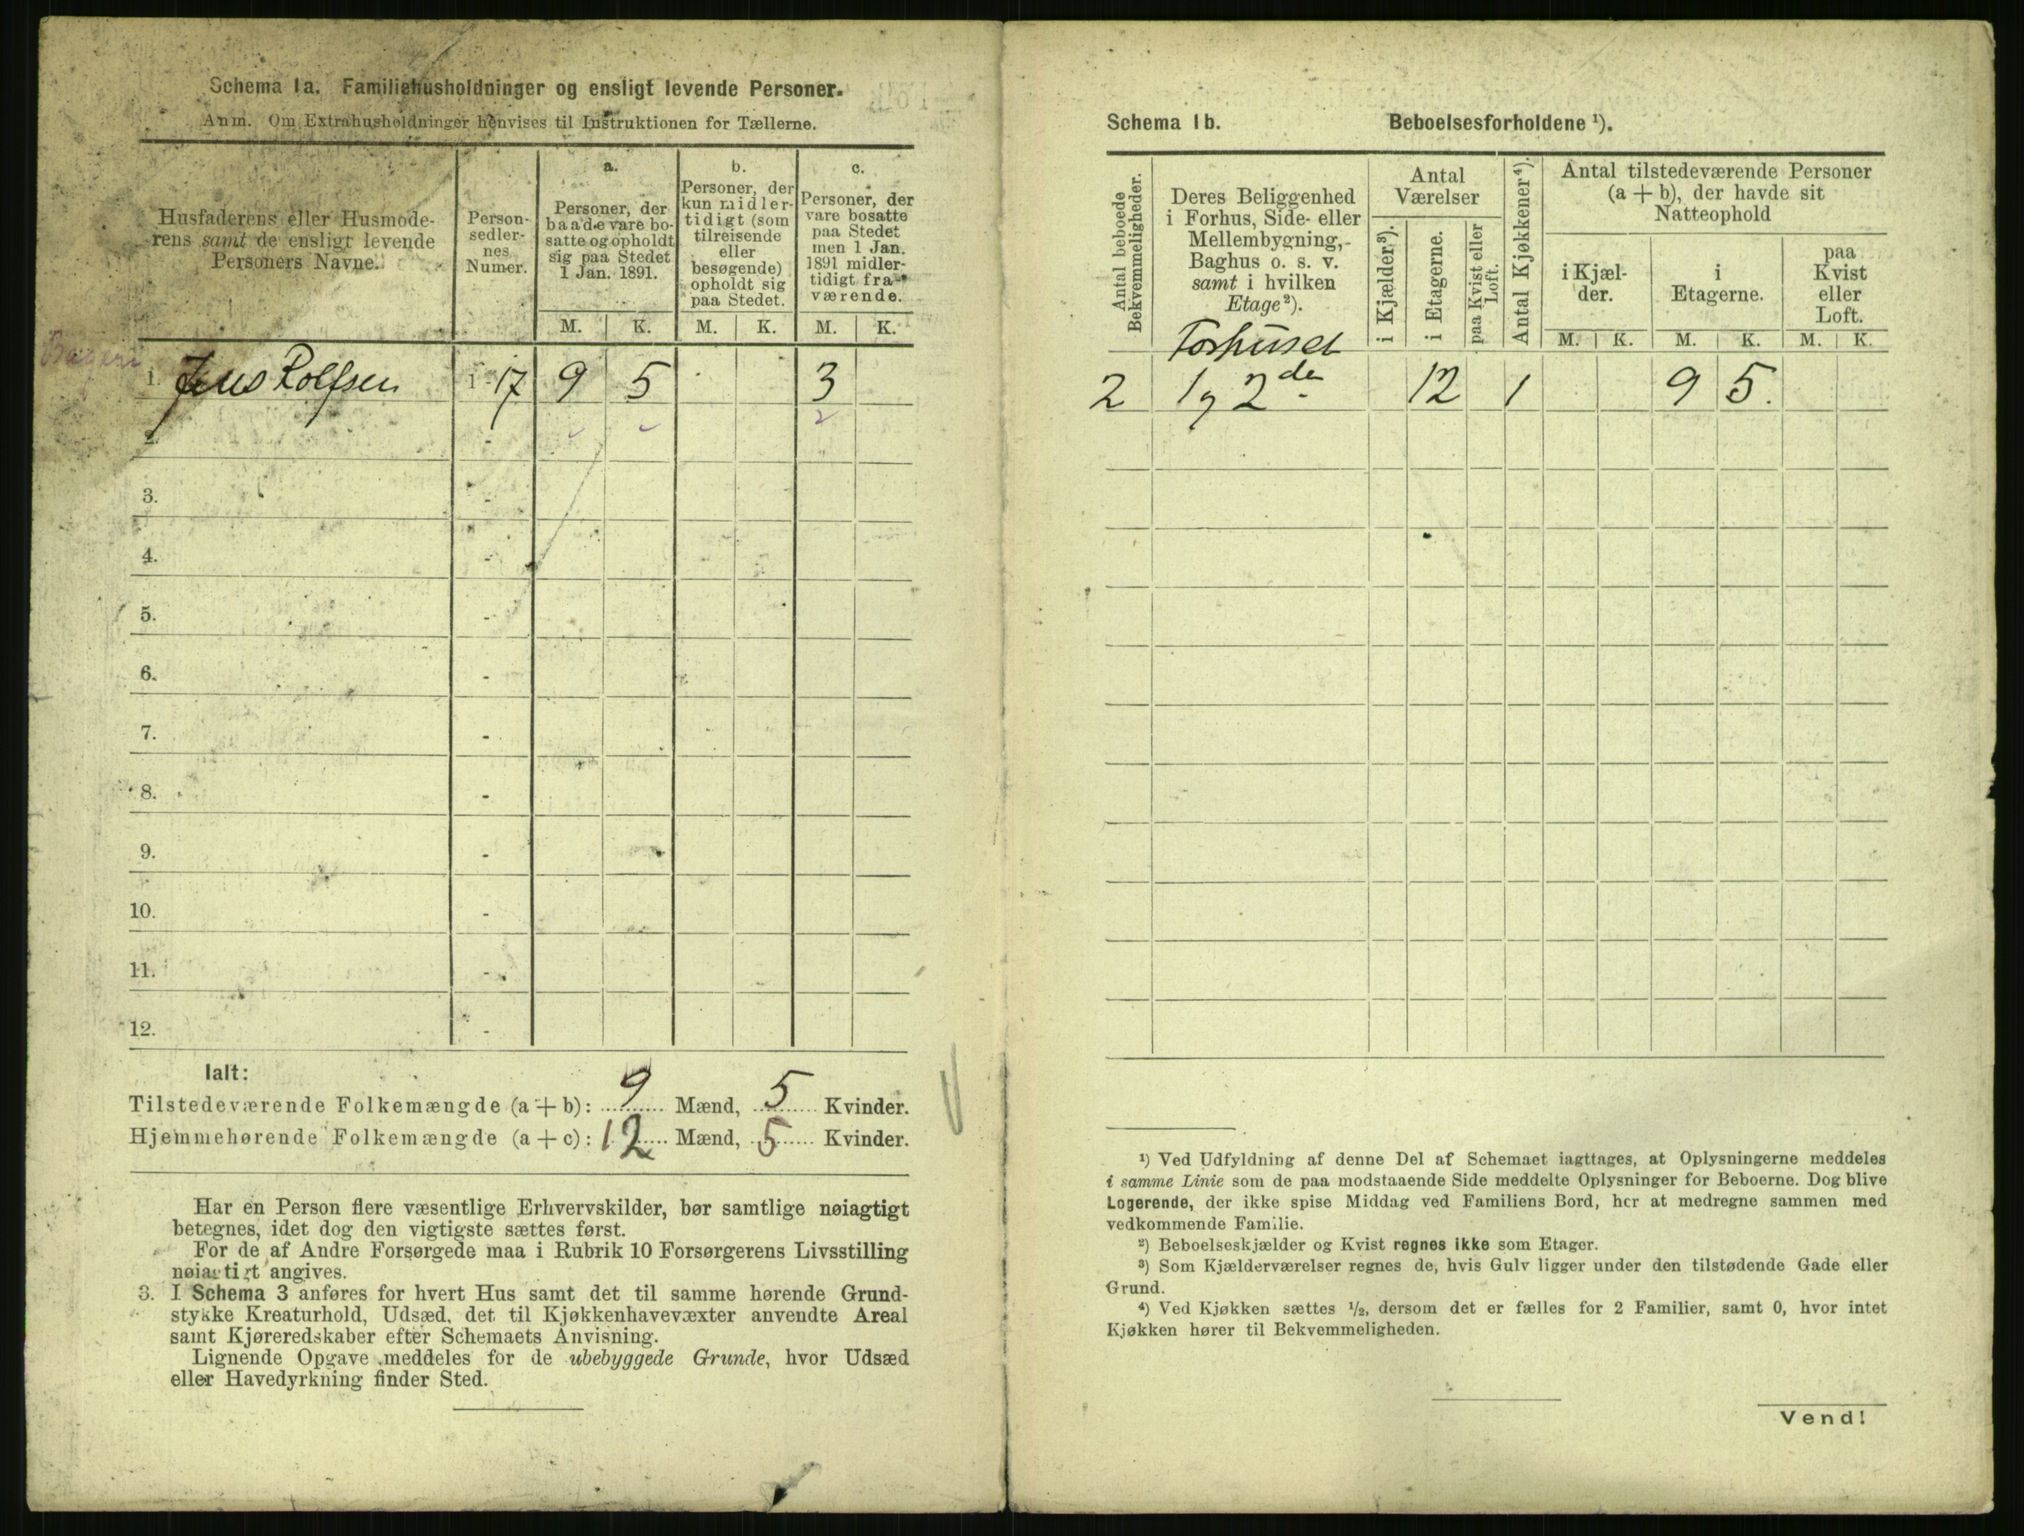 Schema 1a. Familiehusholdninger og ensligt levende Personer.
Anm. Om Extrahusholdninger henvises til Instruktionen for Tællerne.
Husfaderens eller Husmode-
rens samt de ensligt levende
Personers Navne.
Person-
sedler-
nes
Numer.
a.
Personer, der
baade vare bo-
satte og opholdt
sig paa Stedet
1 Jan. 1891.
b.
Personer, der
kun midler-
tidigt (som
tilreisende
eller
besøgende)
opholdt sig
paa Stedet.
c.
Personer, der
vare bosatte
paa Stedet
men 1 Jan.
1891 midler-
tidigt fra-
værende.
M. K. M. K. M. K.
Bageri
1. Jens Rolfsen 1 - 17 9 5 3
2. - 2
3. -
4. -
5. -
6. -
7. -
8. -
9. -
10. -
11. -
12. -
Ialt:
Tilstedeværende Folkemængde (a + b): 9 Mænd, 5 Kvinder.
Hjemmehørende Folkemængde (a + c): 12 Mænd, 5 Kvinder.
Har en Person flere væsentlige Erhvervskilder, bør samtlige nøiagtigt
betegnes, idet dog den vigtigste sættes først.
For de af Andre Forsørgede maa i Rubrik 10 Forsørgerens Livsstilling
nøiagtigt angives.
3. I Schema 3 anføres for hvert Hus samt det til samme hørende Grund-
stykke Kreaturhold, Udsæd, det til Kjøkkenhavevæxter anvendte Areal
samt Kjøreredskaber efter Schemaets Anvisning.
Lignende Opgave meddeles for de ubebyggede Grunde, hvor Udsæd
eller Havedyrkning finder Sted.
Schema 1b. Beboelsesforholdene ¹).
Antal beboede
Bekvemmeligheder.
Deres Beliggenhed
i Forhus, Side- eller
Mellembygning,
Baghus o. s. v.
samt i hvilken
Etage²).
Antal
Værelser
i Kjælder³).
i Etagerne.
paa Kvist eller
Loft.
Antal Kjøkkener⁴).
Antal tilstedeværende Personer
(a + b), der havde sit
Natteophold
i Kjæl-
der.
i
Etagerne.
paa
Kvist
eller
Loft.
M. K. M. K. M. K.
Forhuset
2 1 og 2den 12 1 9 5.
¹) Ved Udfyldning af denne Del af Schemaet iagttages, at Oplysningerne meddeles
i samme Linie som de paa modstaaende Side meddelte Oplysninger for Beboerne. Dog blive
Logerende, der ikke spise Middag ved Familiens Bord, her at medregne sammen med
vedkommende Familie.
²) Beboelseskjælder og Kvist regnes ikke som Etager.
³) Som Kjælderværelser regnes de, hvis Gulv ligger under den tilstødende Gade eller
Grund.
⁴) Ved Kjøkken sættes ½, dersom det er fælles for 2 Familier, samt 0, hvor intet
Kjøkken hører til Bekvemmeligheden.
Vend!